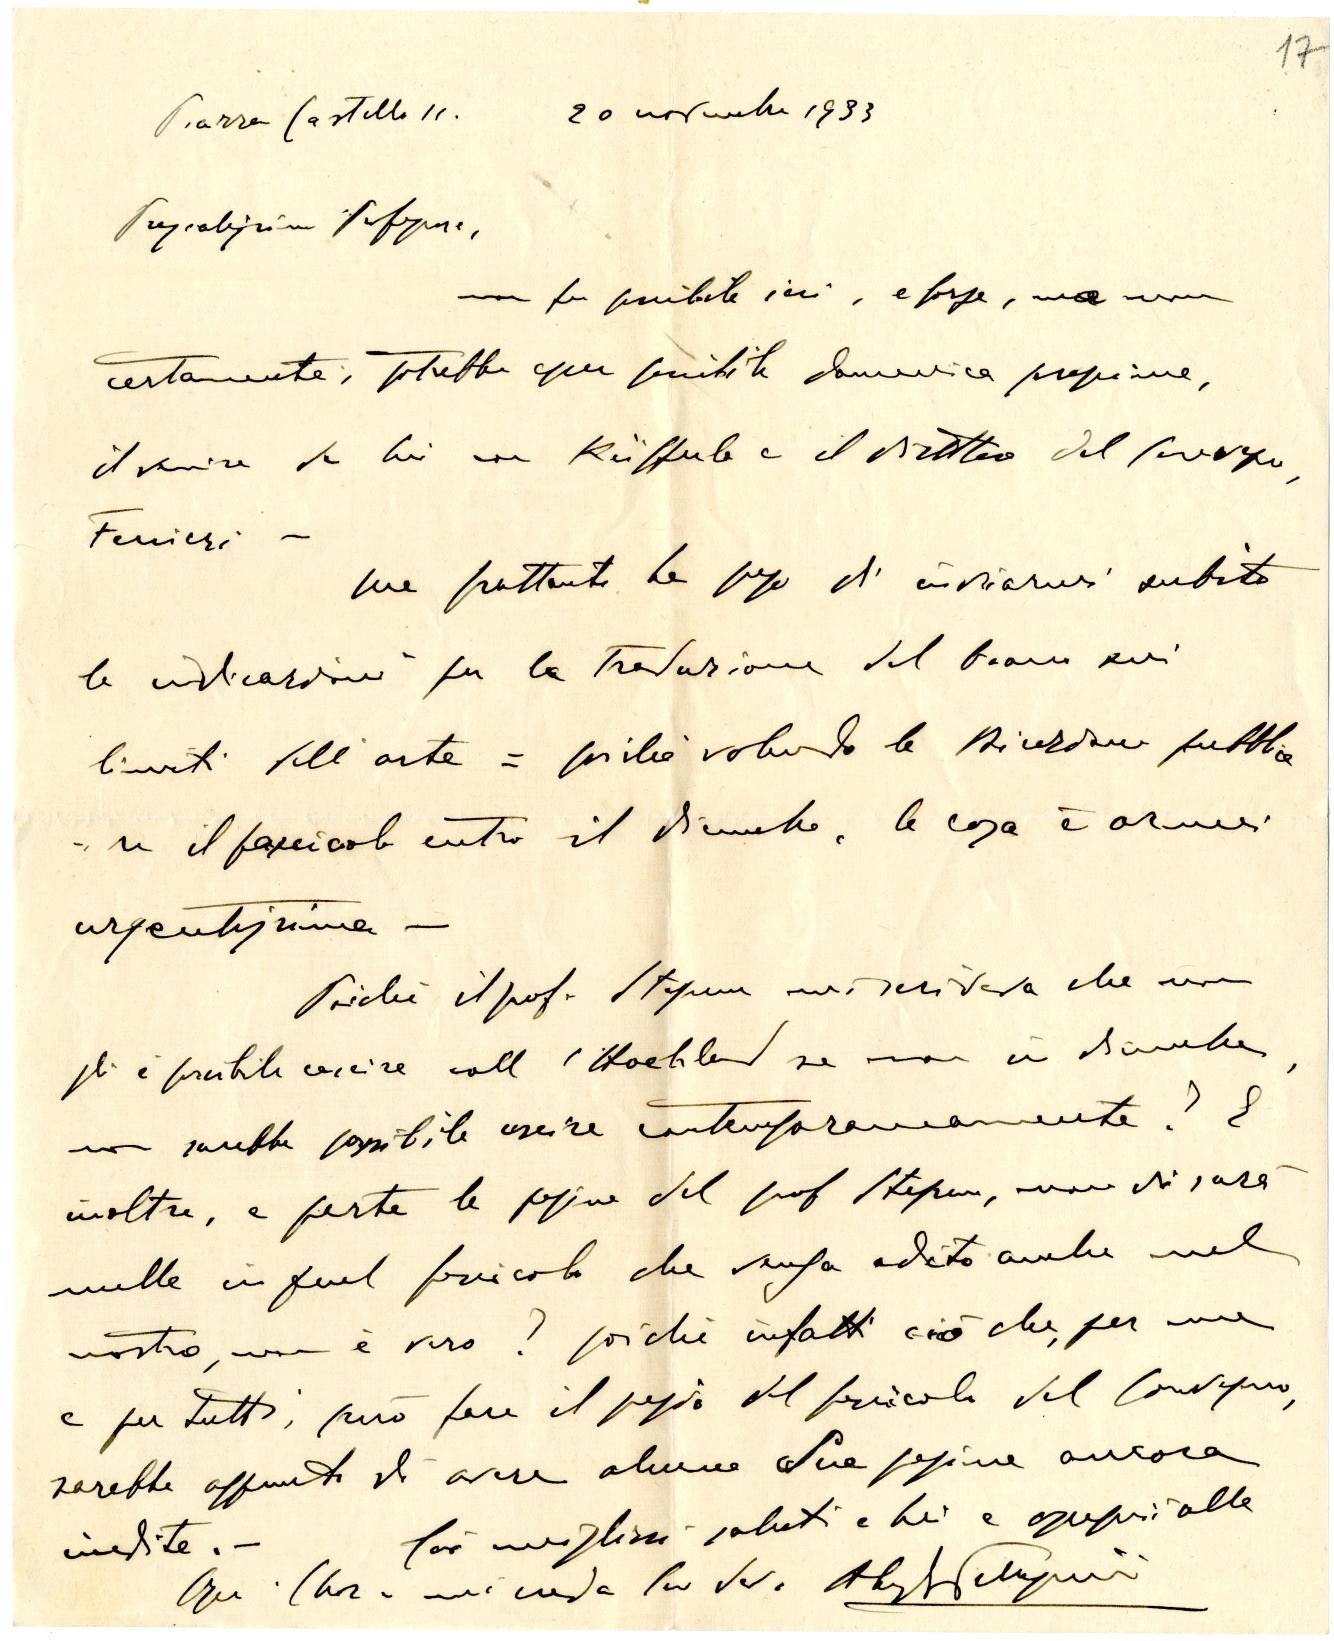 17
Piazza Castello 11. 20 novembre 1933
Pregiatissimo Professore,
non fu possibile ieri, e forse, ma non
certamente, potrebbe esser possibile domenica prossima,
il venire da Lei con Küfferle e il direttore del Convegno,
Ferrieri —
ma frattanto La prego di inviarmi subito
le indicazioni per la traduzione del brano sui
limiti dell'arte = poiché volendo le Ricerdone pubblica
-re il fascicolo entro il dicembre, la cosa è ormai
urgentissima —
Poiché il prof. Stepun mi scriveva che non
gli è possibile uscire coll'Hochland se non in dicembre,
non sarebbe possibile uscire contemporaneamente? E
inoltre, a parte le pagine del prof Stepun, non vi sarà
nulla in quel fascicolo che venga edito anche nel
nostro, non è vero? poiché infatti ciò che, per me
e per tutti, può fare il pregio del fascicolo del Convegno,
sarebbe appunto di avere alcune Sue pagine ancora
inedite. —
Coi migliori saluti a Lei e ossequi alle
mi creda Suo dev.